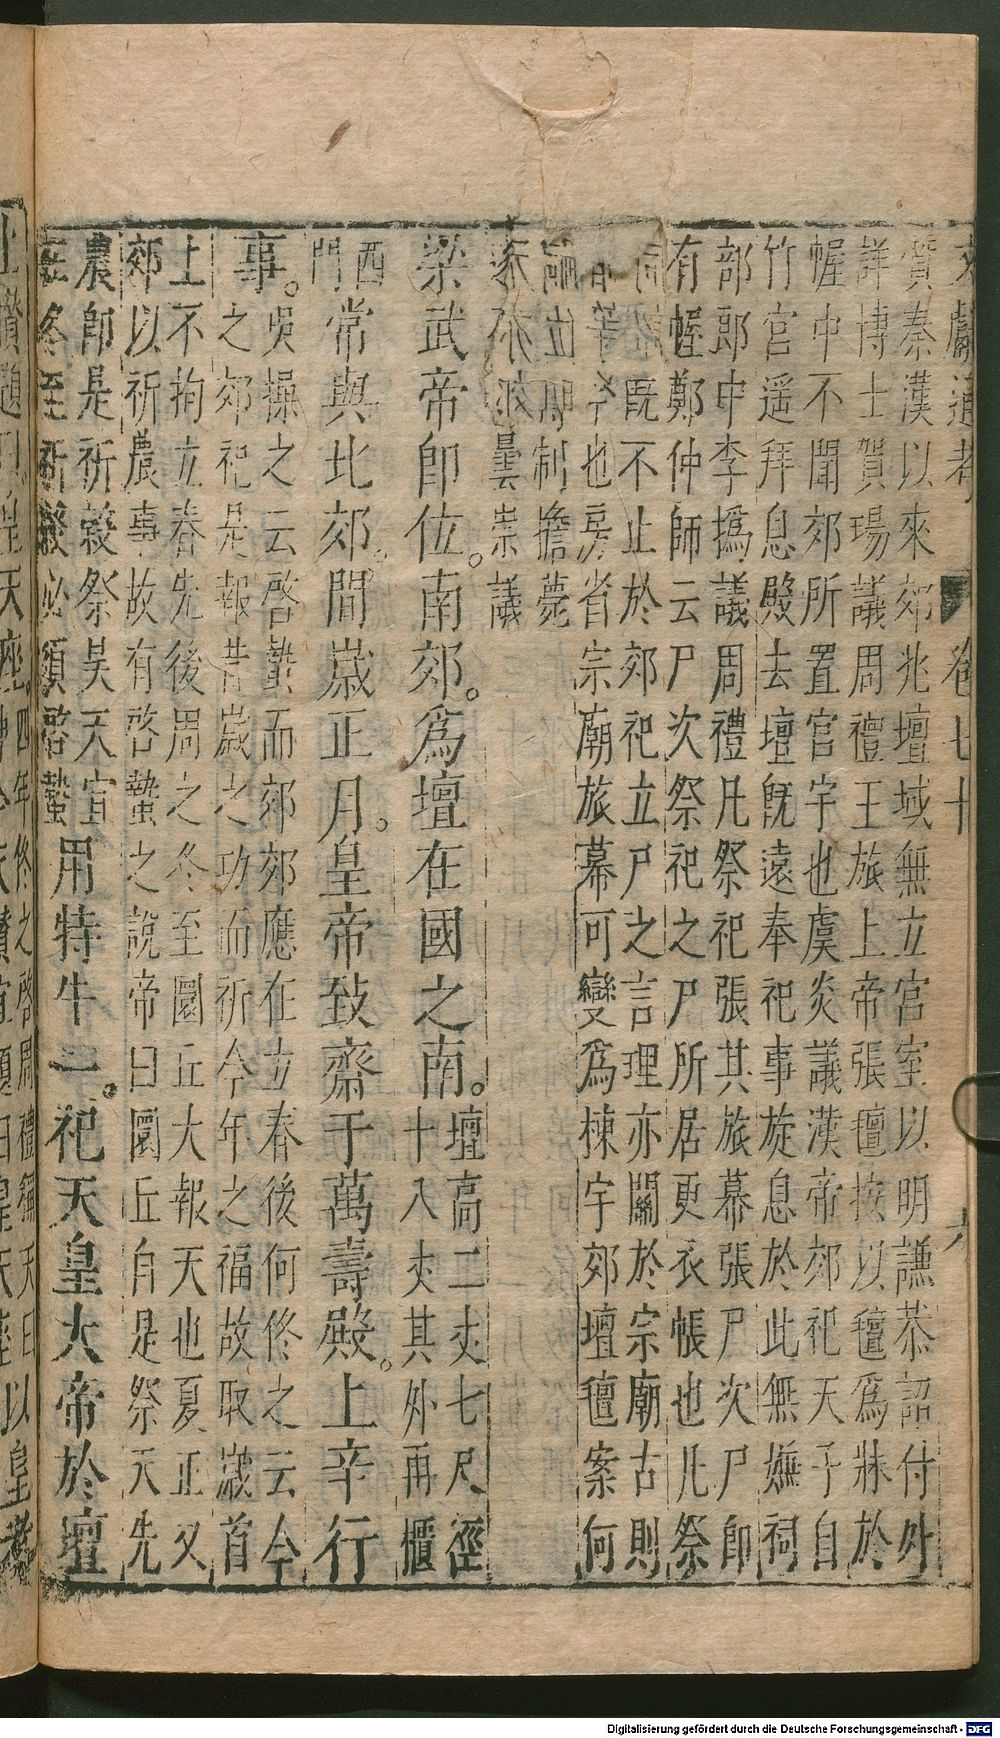 文獻通考 卷七十 六
質秦漢以來郊兆壇域無立宮室以明謙恭詔付外
詳博士賀瑒議周禮王旅上帝張氊按以氊爲牀於
幄中不聞郊所置宮宇也虞炎議漢帝郊祀天子自
竹宮遥拜息殿去壇旣遠奉祀事旋息於此無嫌祠
部郎中李撝議周禮凡祭祀張其旅幕張尸次尸即
有幄鄭仲師云尸次祭祀之尸所居更衣帳也凡祭
旣不止於郊祀立尸之言理亦關於宗廟古則
等今也房省宗廟旅幕可變爲棟宇郊壇氊案何
制擔甍
曇崇議
梁武帝即位。南郊。爲壇在國之南。壇高二丈七尺徑
十八丈其外再櫃
西
門常與北郊。間歲正月。皇帝致齋于萬壽殿。上辛行
事。吳操之云啓蟄而郊郊應在立春後何佟之云今
之郊祀是報昔歲之功而祈今年之福故取歲首
上不拘立春先後周之冬至圜丘大報天也夏正又
郊以祈農事故有啓蟄之說帝曰圜丘自是祭天先
農即是祈穀祭昊天宜
在冬至祈穀必須啓蟄用特牛一。祀天皇大帝於壇
四年佟之啓周禮稱天曰
以皇
Digitalisierung gefördert durch die Deutsche Forschungsgemeinschaft - DFG